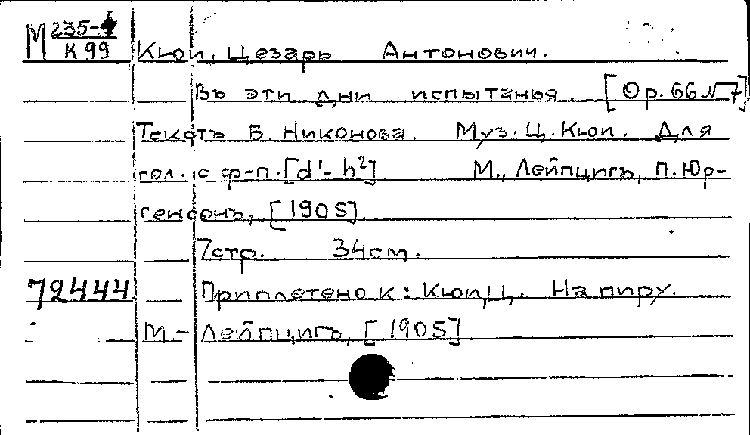 М 235-4
К 99
Кюи, Цезарь Антонович.
Въ эти дни испытанья. [Op. 66 № 7]
Текстъ Б. Никонова. Муз. Ц. Кюи. Для
гол. с ф-п. [d¹- h²] М., Лейпцигъ, П. Юр-
генсонъ, [1905]
7стр. 34см.
72444 Приплетено к: Кюи, Ц. На пиру.
М.- Лейпцигъ, [1905]